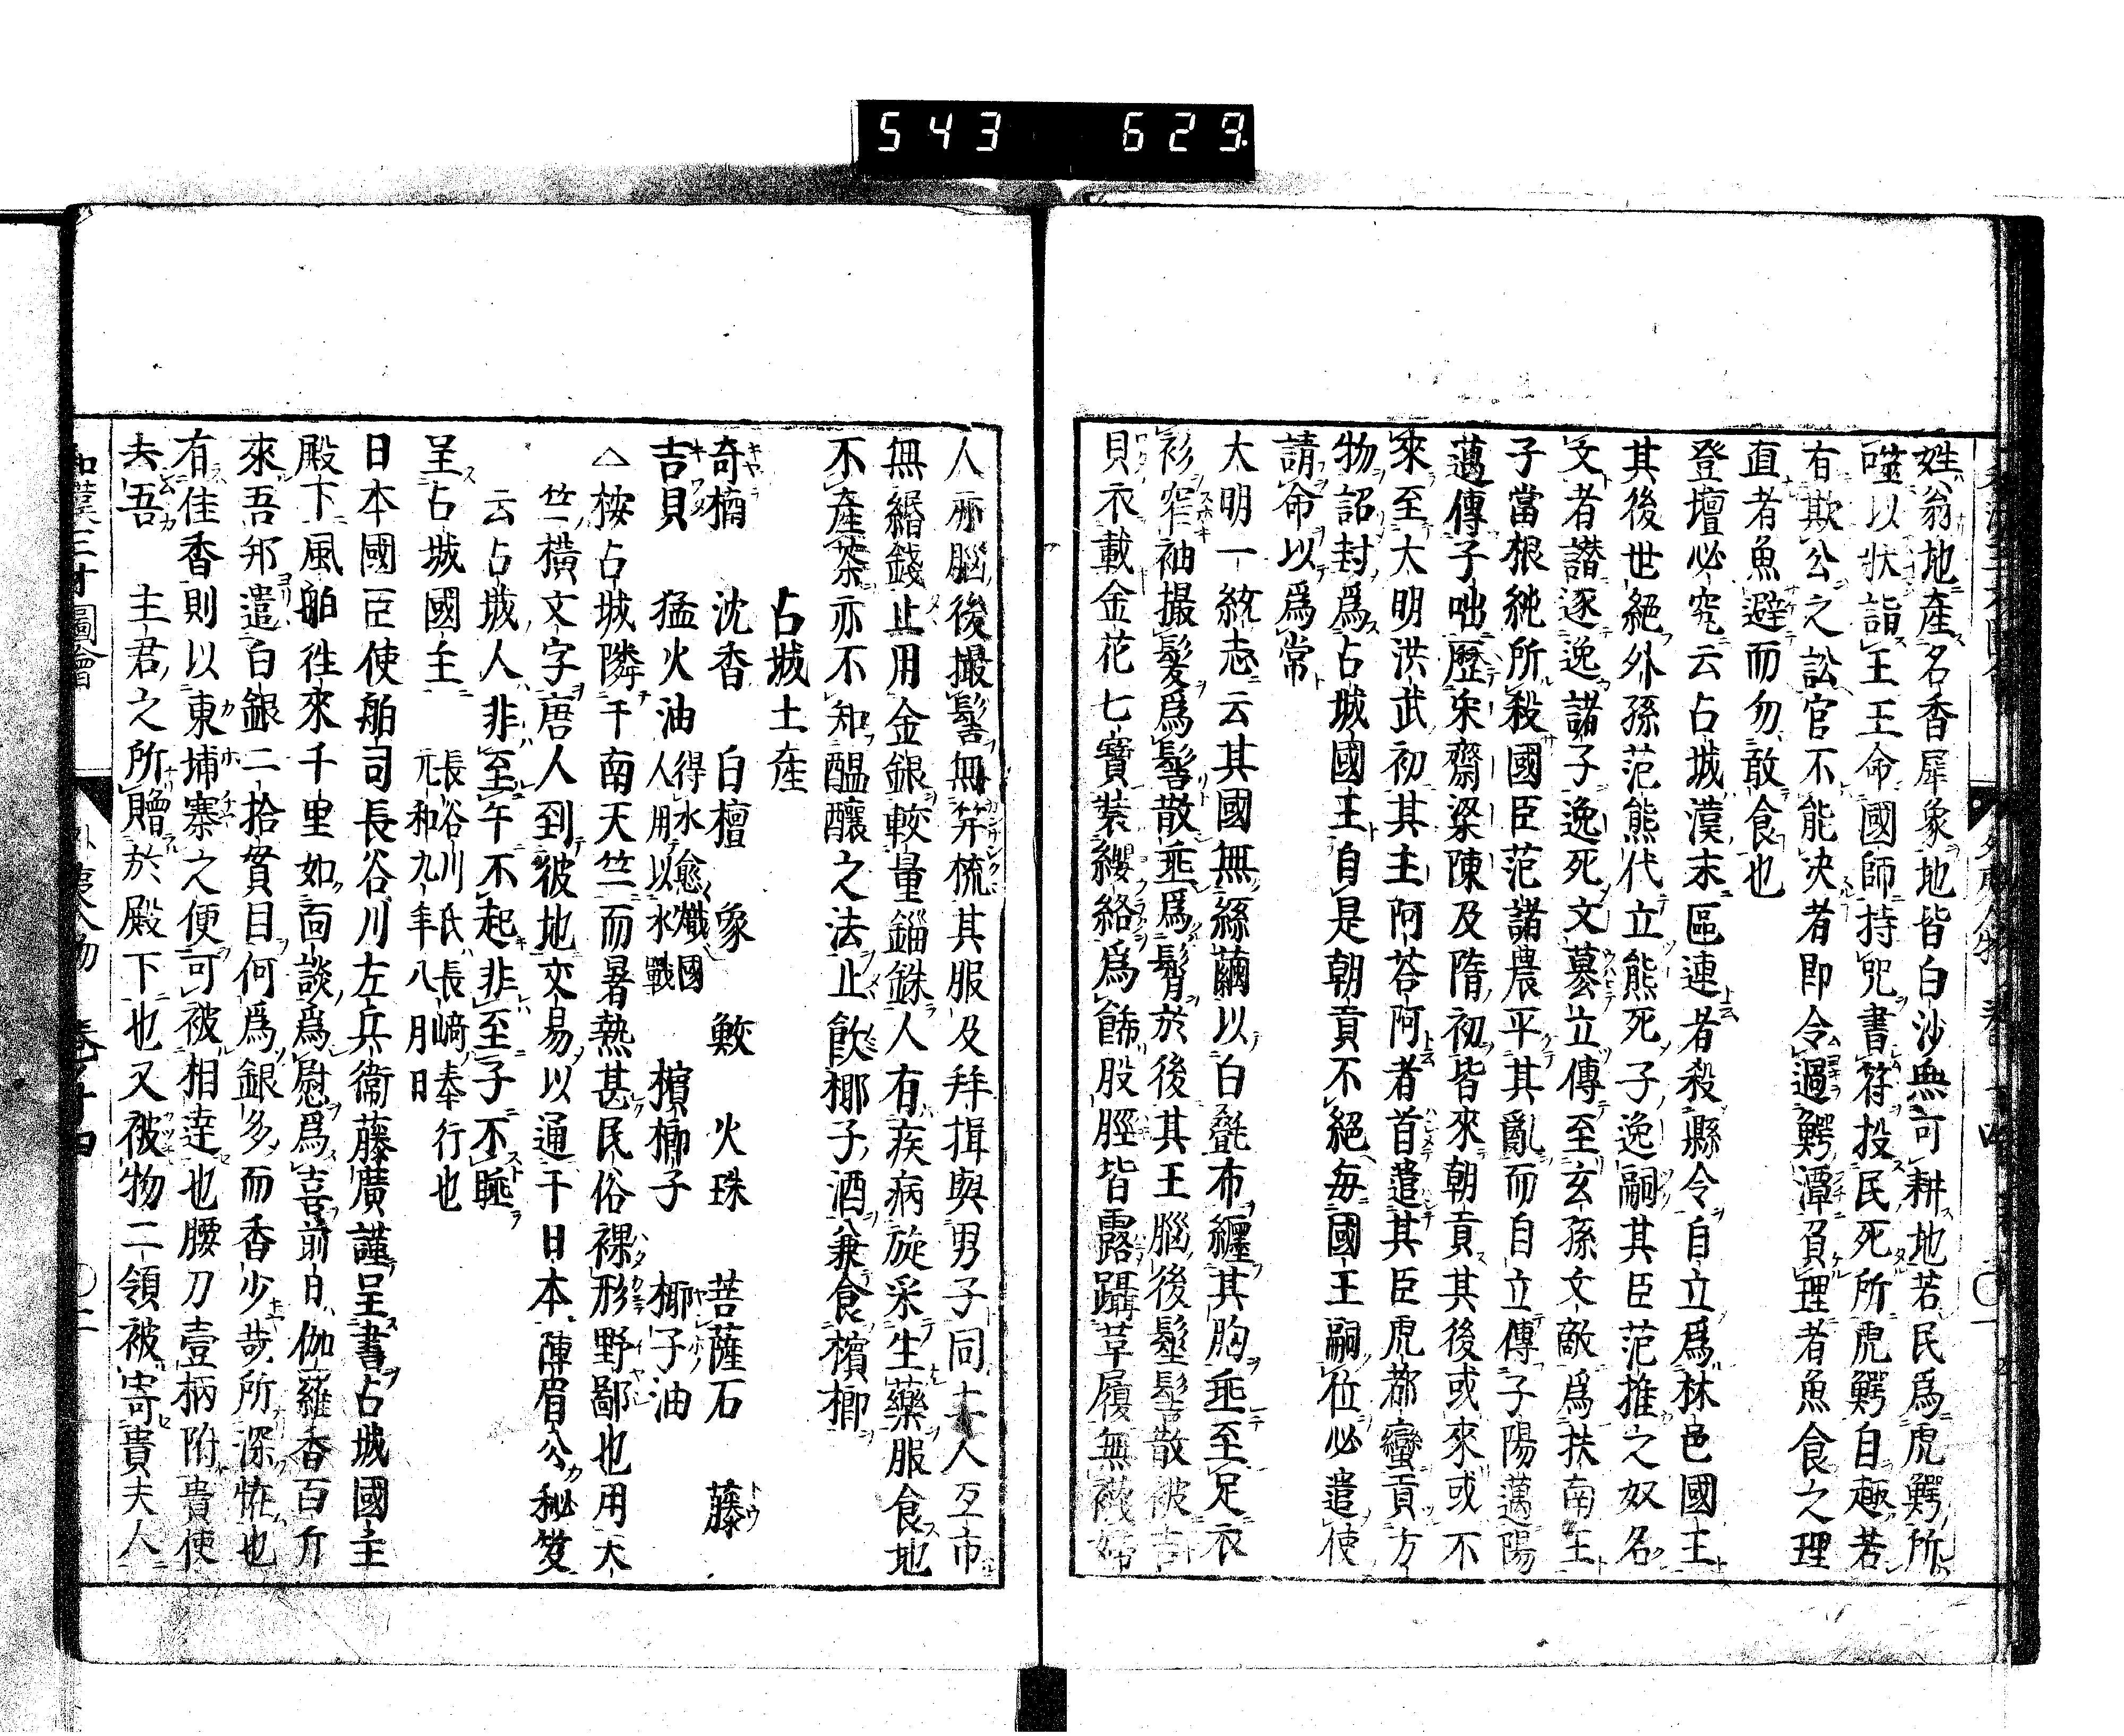 543 629.
姓翁地產名香犀象地皆白沙無可耕地若民爲虎鰐所
噬以狀詣王王命國師持咒書符投民死所虎鰐自趣若
有欺公之訟官不能决者即令過鰐潭負理者魚食之理
直者魚避而勿敢食也
登壇必究云占城漢末區連者殺縣令自立爲林邑國主
其後世絕外孫范熊代立熊死子逸嗣其臣范推之奴名
文者譖逐逸諸子逸死文纂立傳至玄孫文敵爲扶南王
子當根純所殺國臣范諸農平其亂而自立傳子陽邁陽
邁傳子咄歷宋齋梁陳及隋初皆來朝貢其後或來或不
來至大明洪武初其主阿荅阿者首遣其臣虎都蠻貢方
物詔封爲占城國王自是朝貢不絕每國王嗣位必遣使
請命以爲常
大明一統志云其國無絲繭以白㲲布纏其胸垂至足衣
衫窄袖撮髮爲髻散垂爲髾於後其王腦後鬆髻散被吉
貝衣載金花七寶装纓絡爲餙股脛皆露躡草履無襪婦
人亦腦後撮髻無笄梳其服及拜揖與男子同土人互市
無緡錢止用金銀較量錙銖人有疾病旋采生藥服食地
不產茶亦不知醞釀之法止飲椰子酒兼食檳榔
占城土產
奇楠 沈香 白檀 象 鮫 火珠 菩薩石 藤
吉貝 猛火油 得水愈熾國人用以水戰 檳榔子 椰子油
△桉占城隣于南天竺而暑熱甚民俗裸形野鄙也用天
竺橫文字唐人到彼地交易以通于日本陳眉公秘笈
云占城人非至午不起非至子不睡
呈占城國主 元和九年八月日 長谷川氏長﨑奉行也
日本國臣使舶司長谷川左兵衞藤廣謹呈書占城國主
殿下風舶徃來千里如面談爲慰爲喜前日伽羅香百斤
來吾邦遣白銀二拾貫目何爲銀多而香少哉所深恠也
有佳香則以東埔寨之便可被相達也腰刀壹柄附貴使
去吾 主君之所贈於殿下也又被物二領被寄貴夫人
和漢三才圖會